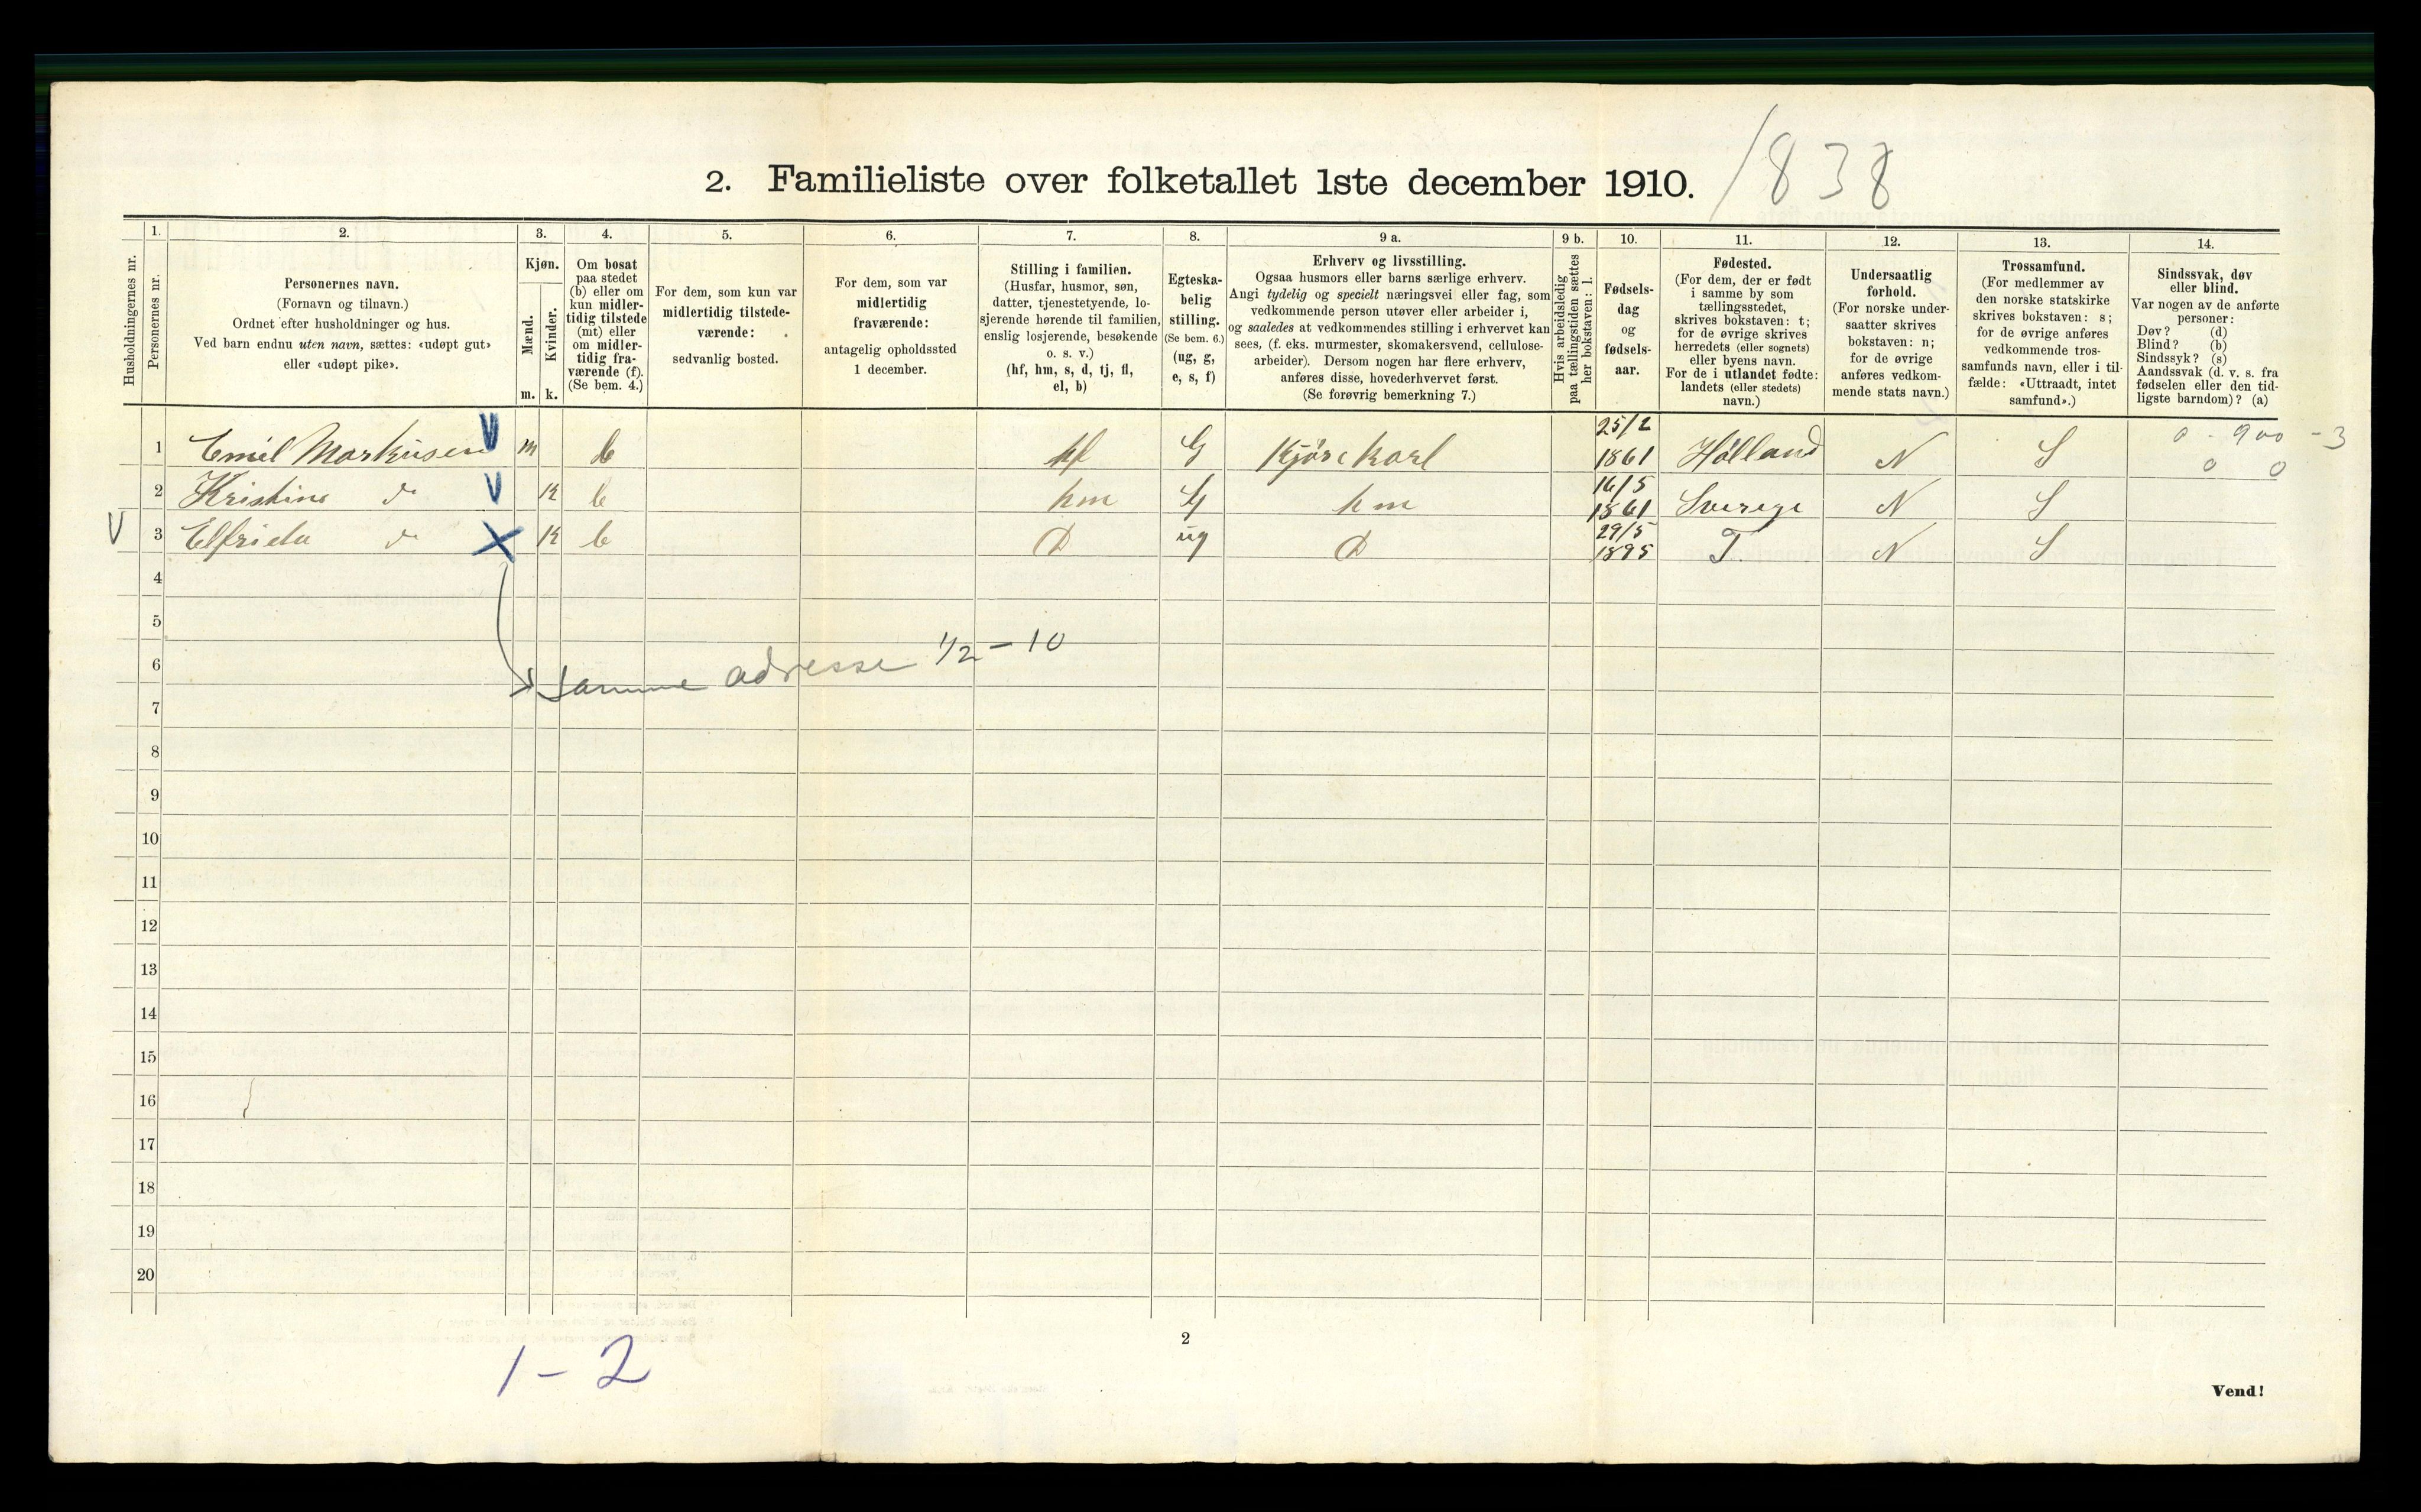 1838
2. Familieliste over folketallet 1ste december 1910.
Husholdningernes nr.
1. Personernes nr.
2. Personernes navn.
(Fornavn og tilnavn.)
Ordnet efter husholdninger og hus.
Ved barn endnu uten navn, sættes: «udøpt gut»
eller «udøpt pike».
3. Kjøn.
Mænd. Kvinder.
m. k.
4. Om bosat
paa stedet
(b) eller om
kun midler-
tidig tilstede
(mt) eller
om midler-
tidig fra-
værende (f).
(Se bem. 4.)
5. For dem, som kun var
midlertidig tilstede-
værende:
sedvanlig bosted.
6. For dem, som var
midlertidig
fraværende:
antagelig opholdssted
1 december.
7. Stilling i familien.
(Husfar, husmor, søn,
datter, tjenestetyende, lo-
sjerende hørende til familien,
enslig losjerende, besøkende
o. s. v.)
(hf, hm, s, d, tj, fl,
el, b)
8. Egteska-
belig
stilling.
(Se bem. 6.)
(ug, g,
e, s, f)
9 a. Erhverv og livsstilling.
Ogsaa husmors eller barns særlige erhverv.
Angi tydelig og specielt næringsvei eller fag, som
vedkommende person utøver eller arbeider i,
og saaledes at vedkommendes stilling i erhvervet kan
sees, (f. eks. murmester, skomakersvend, cellulose-
arbeider). Dersom nogen har flere erhverv,
anføres disse, hovederhvervet først.
(Se forøvrig bemerkning 7.)
9 b. Hvis arbeidsledig
paa tællingstiden sættes
her bokstaven: l.
10. Fødsels-
dag
og
fødsels-
aar.
11. Fødested.
(For dem, der er født
i samme by som
tællingsstedet,
skrives bokstaven: t;
for de øvrige skrives
herredets (eller sognets)
eller byens navn.
For de i utlandet fødte:
landets (eller stedets)
navn.)
12. Undersaatlig
forhold.
(For norske under-
saatter skrives
bokstaven: n;
for de øvrige
anføres vedkom-
mende stats navn.)
13. Trossamfund.
(For medlemmer av
den norske statskirke
skrives bokstaven: s;
for de øvrige anføres
vedkommende tros-
samfunds navn, eller i til-
fælde: «Uttraadt, intet
samfund».)
14. Sindssvak, døv
eller blind.
Var nogen av de anførte
personer:
Døv? (d)
Blind? (b)
Sindssyk? (s)
Aandssvak (d. v. s. fra
fødselen eller den tid-
ligste barndom)? (a)
1 Emil Markusen V m b hf G Kjørekarl 25/2 1861 Hølland N S 0 - 900 - 3
0 0
2 Kristine do V K b hm G hm 16/5 1861 Sverige N S
V 3 Elfrida do X K b D ug D 29/5 1895 T. N S
4
5
6 samme adresse 1/2 - 10
7
8
9
10
11
12
13
14
15
16
17
18
19
20
2
1 - 2
Vend!